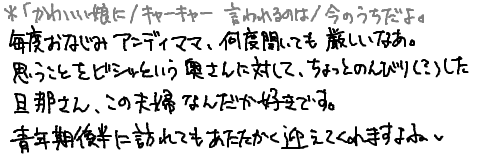 *「かわいい娘に/キャーキャー 言われるのは/今のうちだよ。
毎度おなじみ アンディママ、何度聞いても 厳しいなあ。
思うことをビシッという 奥さんに対して、ちょっとのんびり(?)した
旦那さん、この夫婦 なんだか好きです。
青年期後半に訪れてもあたたかく迎えてくれますよね〜